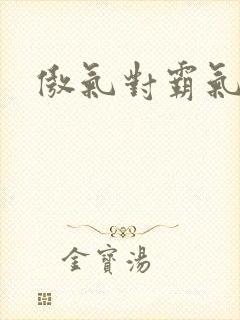 傲氣對霸氣
金寶湯